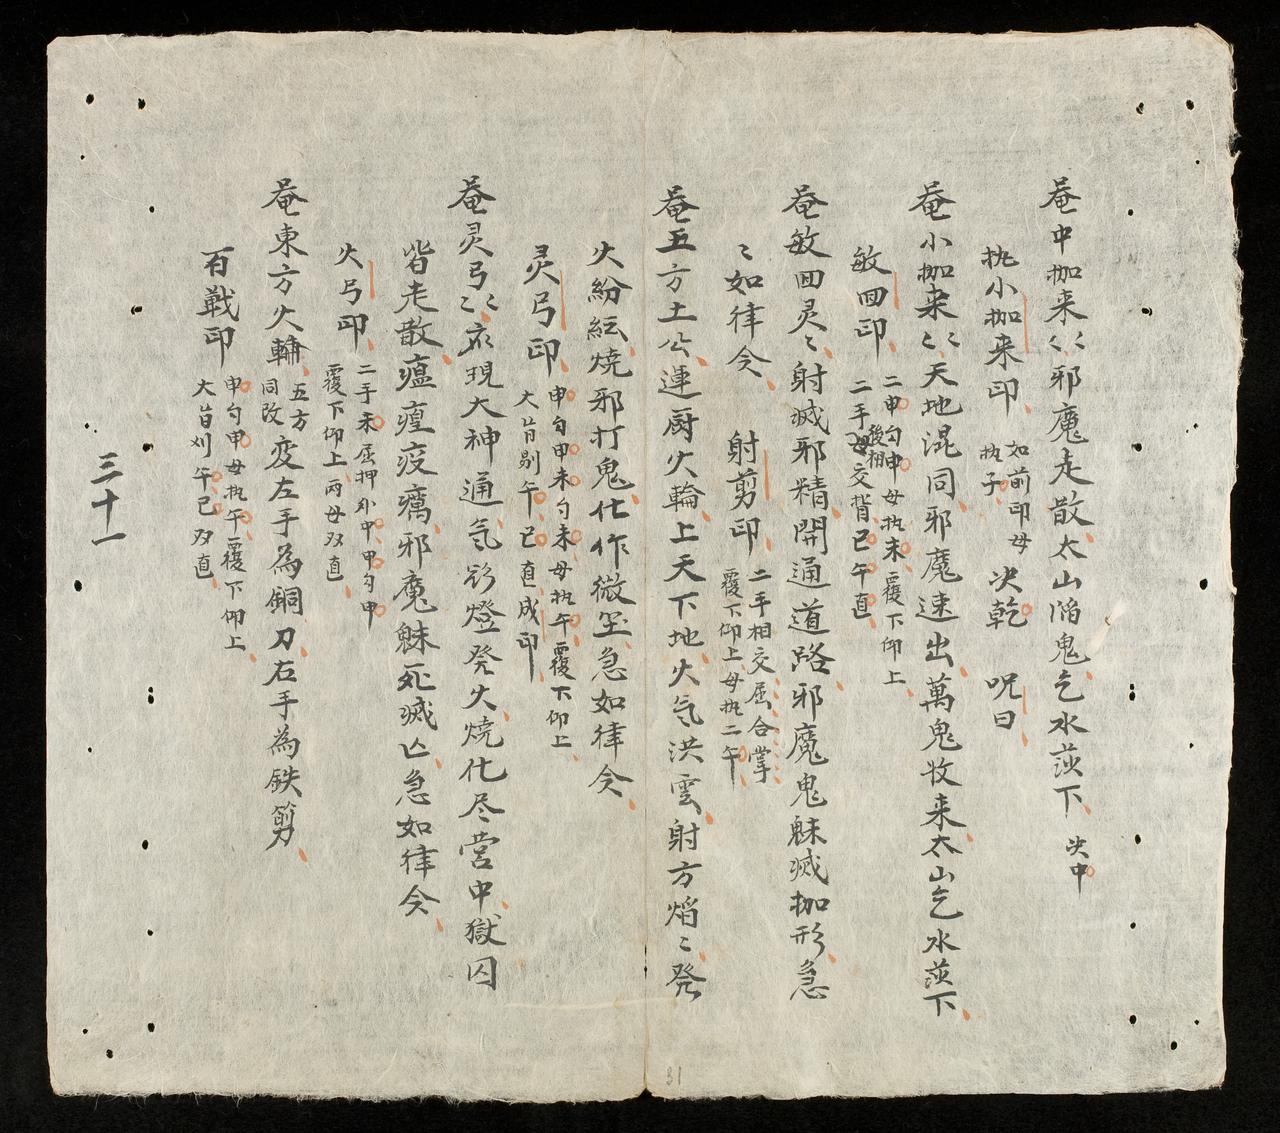 菴中抛来〻〻邪魔走散太山滔鬼乞水茨下 决中
执小抛来印 如前印母执子 决乾 呪曰
菴小抛来〻〻天地混同邪魔速出萬鬼收来太山乞水茨下
敏囬印 二申勾申母执未覆下仰上 二手母後相交背巳午直
菴敏囬灵〻射滅邪精開通道路邪魔鬼魅滅抛形急
〻如律令 射剪印 二手相交屈合掌覆下仰上母执二午
菴五方土公連厨火輪上天下地火気洪雲射方焰〻発
火紛紜焼邪打鬼化作微尘急如律令
灵弓印 申勾申未勾未母执午覆下仰上 大旹剔午巳直成印
菴灵弓〻〻衣現大神通気彩燈発火焼化尽营中獄囚
皆走散瘟瘟疫癘邪魔魅死滅亾急如律令
火弓印 二手未屈押外中甲勾申 覆下仰上丙母双直
菴東方火輪 五方同改 变左手為銅刀右手為鉄剪
百戦印 申勾甲母执午覆下仰上 大旹刈午巳双直
三十一
31